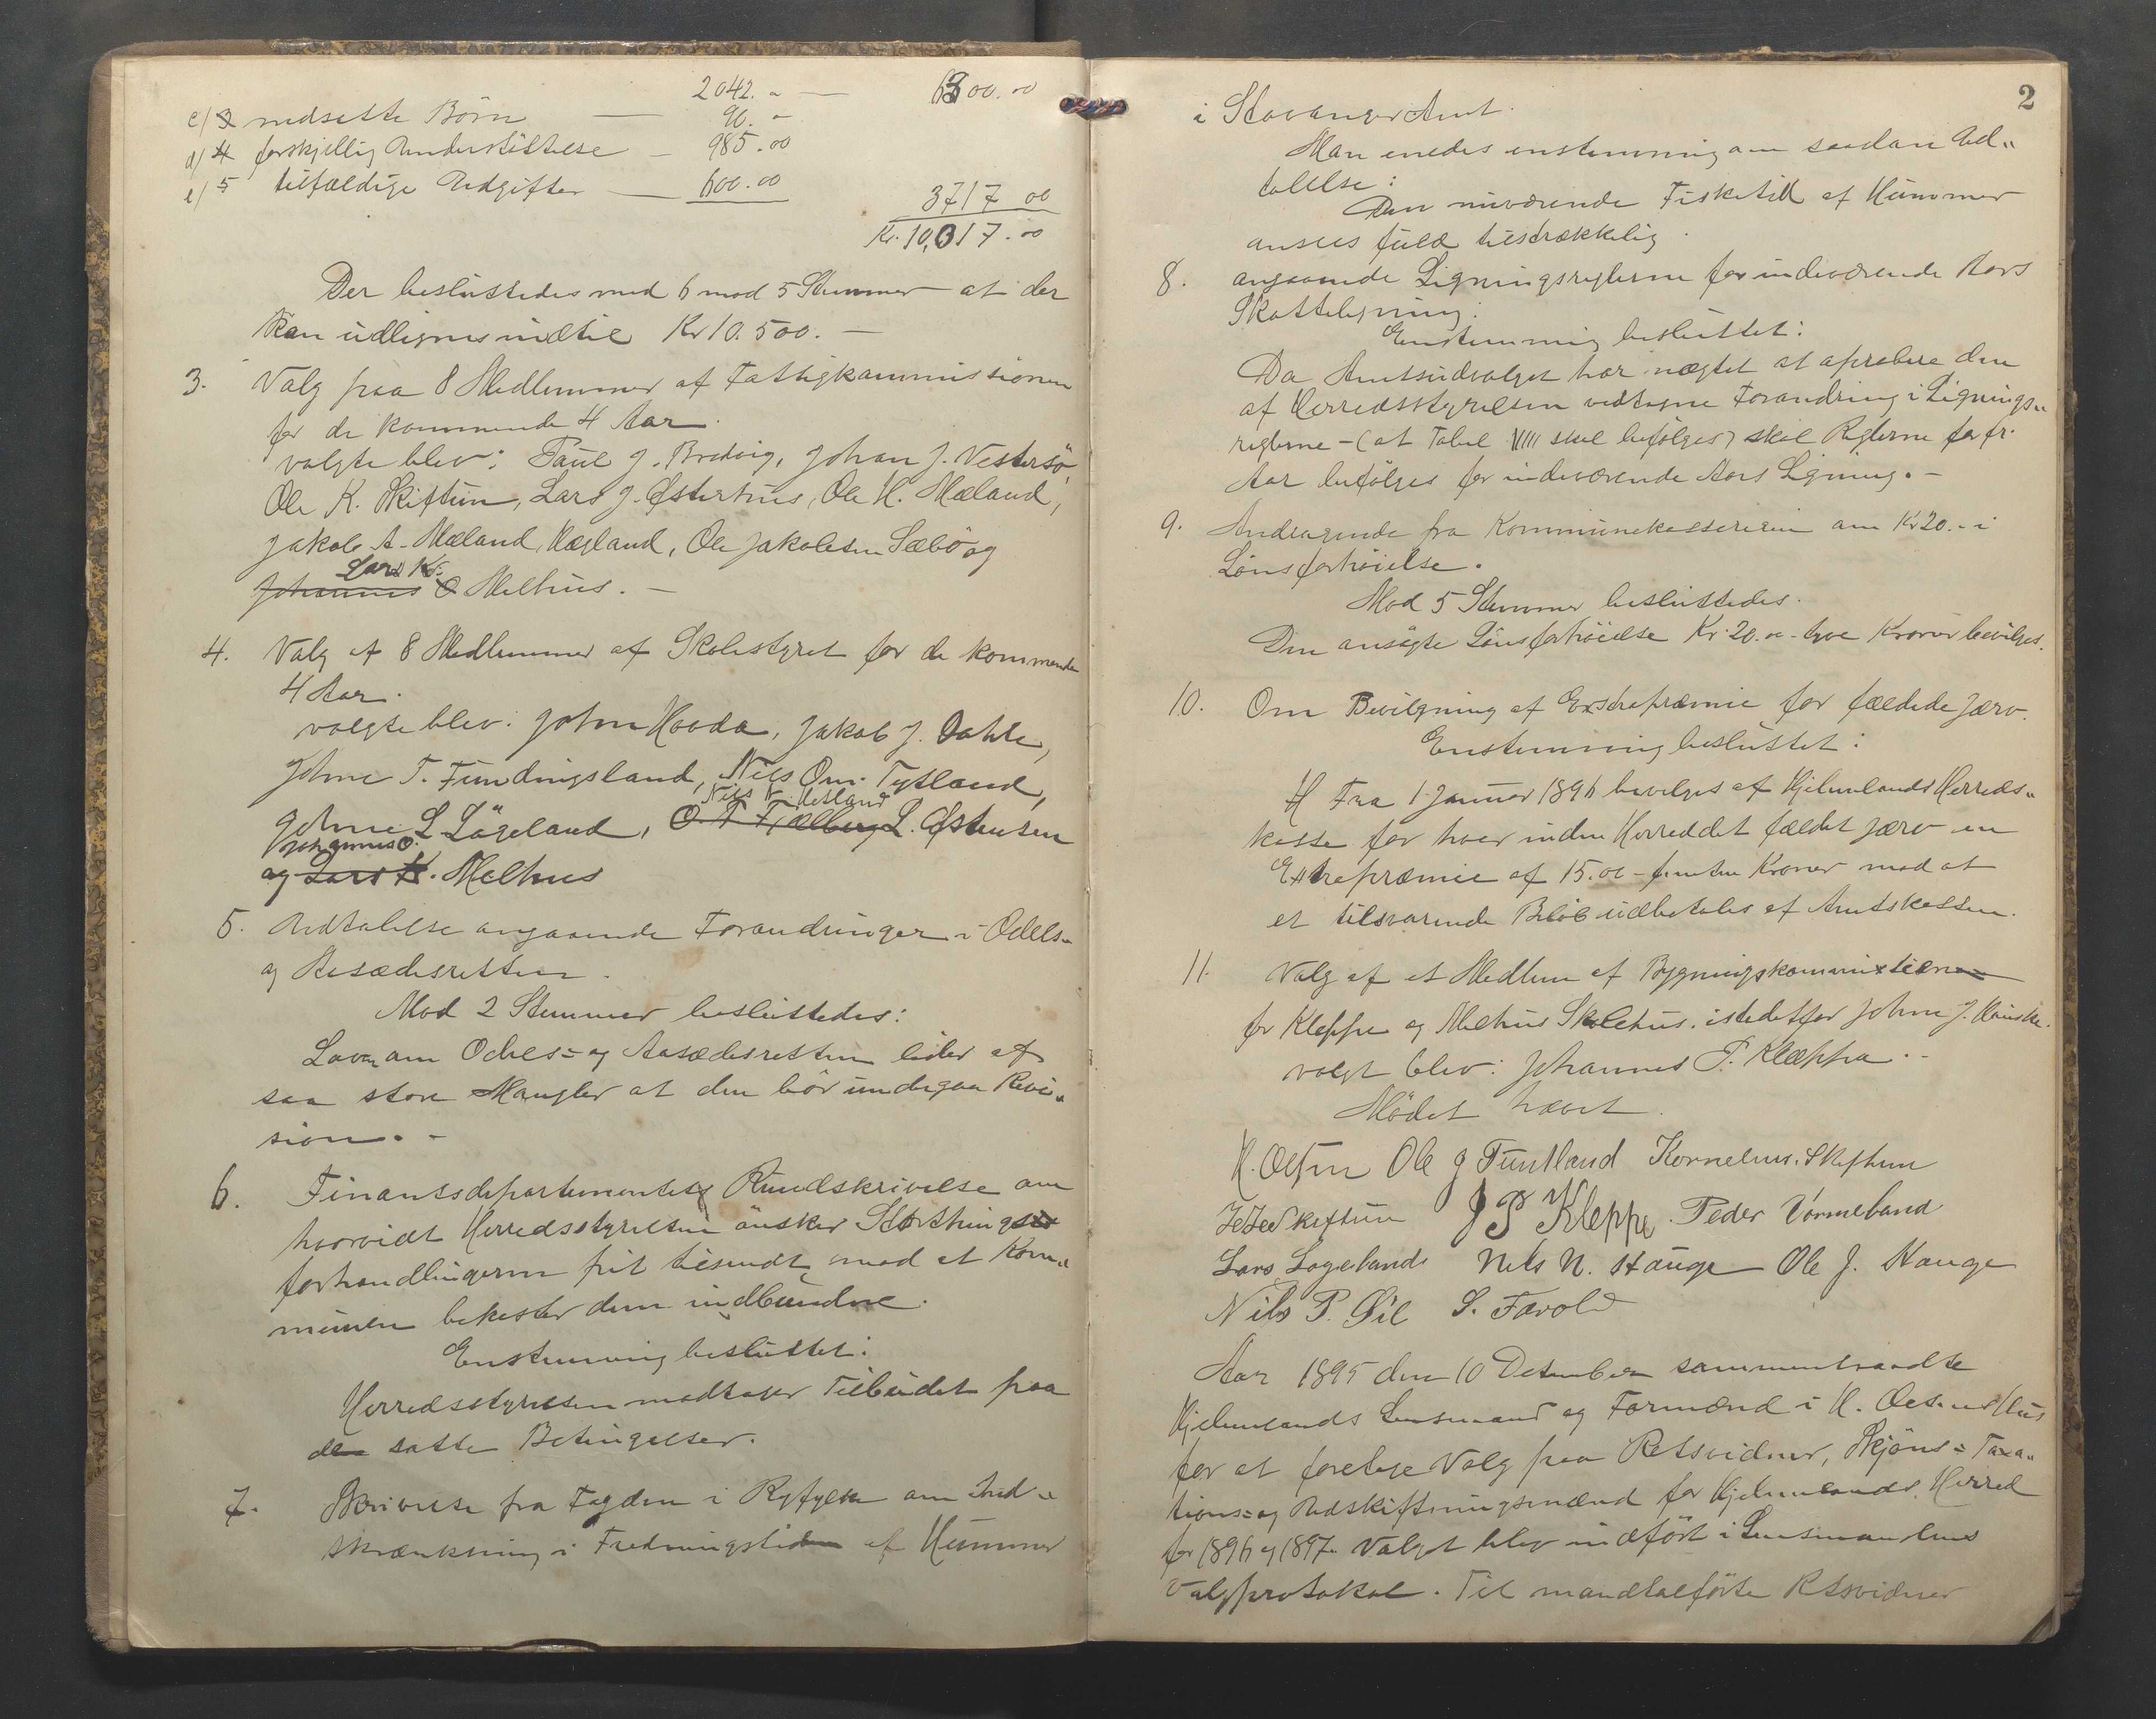 2042. - — 6300.00
c/ 3 nedsatte Börn — 90. -
d/ 4 forskjellig Understöttelse — 985.00
e/ 5 tilfældige Udgifter — 600.00
3717 00
Kr. 10,017.00
Der besluttedes med 6 mod 5 Stemmer at der
kan udlignes indtil Kr 10.500. —
3. Valg paa 8 Medlemmer af Fattigkommissionen
for de kommende 4 Aar.
valgte blev: Paul J. Bredvig, Johan J. Vestersö,
Ole K. Skiftun, Lars J. Østerhus, Ole H. Mæland,
Jakob A. Mæland, Mæland, Ole Jakobsen Sæbö og
Lars K.
Johannes O Melhus. —
4. Valg af 8 Medlemmer af Skolestyret for de kommende
4 Aar.
valgte blev: John Hovda, Jakob J. Dahle,
Johne T. Fundingsland, Nils Om. Tytland,
Nils N. Hetland
Johne L Lögeland, O. T. Fjælberg L. Østensen
Johannes O.
og Lars K. Melhus
5. Udtalelse angaaende Forandringer i Odels-
og Aasædesretten.
Mod 2 Stemmer besluttedes:
Loven om Odels= og Aasædesretten lider af
saa store Mangler at den bör undergaa Revi-
sion. -
6. Finantsdepartementets Rundskrivelse om
hvorvidt Herredsstyrelsen önsker Storthings
forhandlingerne frit tilsendt mod at Kom-
munen bekoster dem indbundne.
Enstemmig besluttet:
Herredsstyrelsen modtager Tilbudet paa
de satte Betingelser.
7. Skrivelse fra Fogden i Ryfylke om Ind-
skrænkning i Fredningstiden af Hummer
2
i Stavanger Amt.
Man enedes enstemmig om saadan Ud-
talelse:
Den nuværende Fisketid af Hummer
ansees fuld tilstrækkelig.
8. angaaende Ligningsreglerne for indeværende Aars
Skatteligning.
Enstemmig besluttet:
Da Amtsudvalget har nægtet at aprobere den
af Herredsstyrelsen vedtagne Forandring i Lignings-
reglerne - (at Tabel VIII skal befölges) skal Reglerne for fr.
Aar befölges for indeværende Aars Ligning. -
9. Andragende fra Kommunekassereren om Kr 20.- i
Lönsforhöielse.
Mod 5 Stemmer besluttedes.
Den ansögte Lönsforhöielse Kr. 20.00 - tyve Kroner bevilges.
10. Om Bevilgning af Exstrapræmie for fældede Jærv.
Enstemmig besluttet:
Fra 1 Januar 1896 bevilges af Hjelmelands Herreds-
kasse for hver inden Herreddet fældet Jærv en
Extrapræmie af 15.00 - femten Kroner mod at
et tilsvarende Belöb udbetales af Amtskassen.
11. Valg af et Medlem af Bygningskommission
for Kleppe og Melhus Skolehus. istedetfor Johne J. Hauske.
valgt blev: Johannes P. Kleppa. -
Mödet hævet.
H. Oesen Ole J Tuntland Kornelius Skiftun
Skiftun J P Kleppe. Peder Vormeland
Lars Logeland Nils N. Hauge Ole J. Hauge
Nils P. Öie S. Tavold
Aar 1895 den 10 December sammentraadte
Hjelmelands Lensmand og Formænd i H. Oesens Hus
for at foretage Valg paa Retsvidner, Skjöns= Taxa-
tions= og Udskiftningsmænd for Hjelmelands Herred
for 1896 og 1897. Valget blev indfört i Lensmandens
Valgprotokol. Til mandtalförte Retsvidner